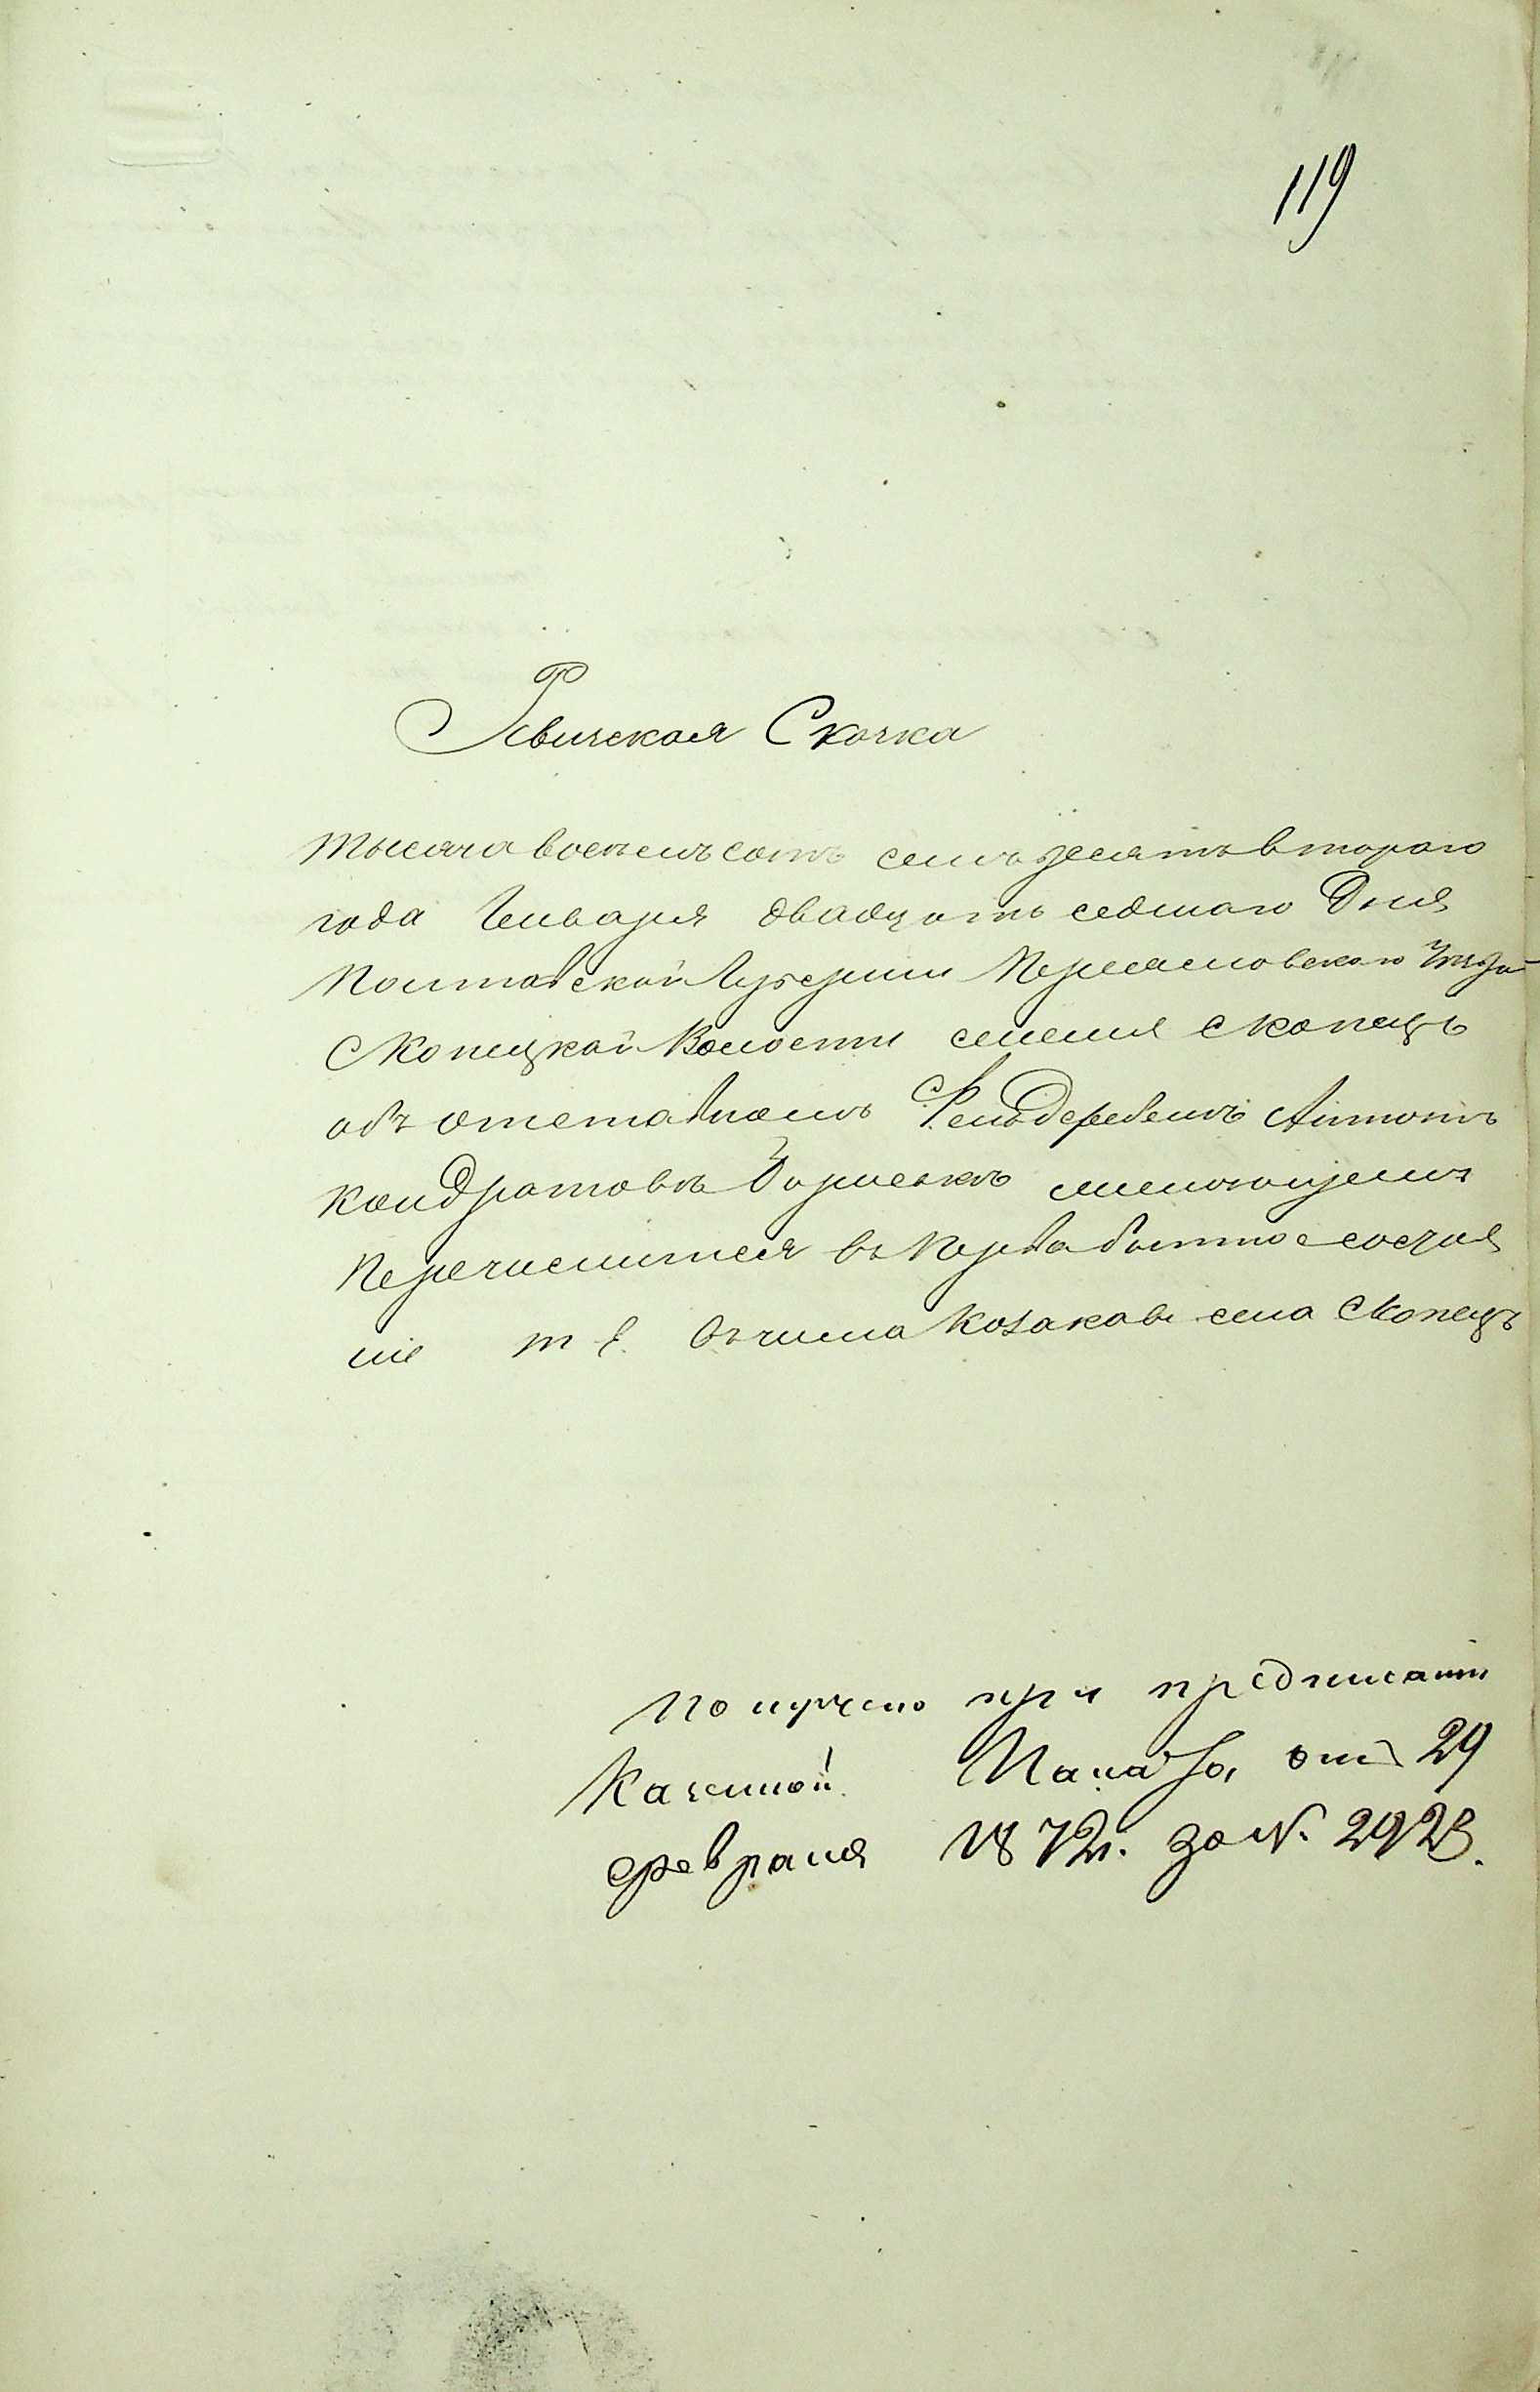 119
Ревизская Сказка
Тысяча восемъсотъ семьдесятъ втораго
года Генваря двадцать седмаго Дня
Полтавской Губерніи Переясловскаго Уезда
Скопецкой Волости селенія Скопецъ
объ отставномъ Фельдфебеле Антоне
Кондратове
Перечислится въ Первобытное состоя
ніе т е. въ числа Козаковъ села Скопецъ
Получено при предписаніи
Казенной Палаты, отъ 29
февраля 1872г. за N. 2928.